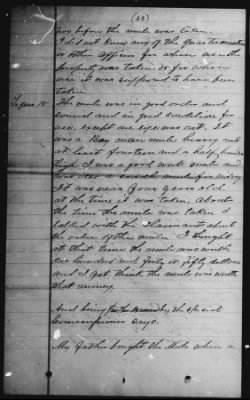 (23)
two before the mule was taken.
I did not know any of the quartermasters
or other officers for whose use the
property was taken or for whose
use it was supposed to have been
taken.
The mule was in good order and
sound and in good condition for
use except one eye was out. It
was a Bay mare mule heavy and
at least fourteen and a half hands
high. It was a good work mule and
was also a saddle mule for riding
It was near four years old
at the time it was taken. About
the time the mule was taken I
talked with the claimant about
the value of the mule. I thought
at that time the mule was worth
two hundred and forty or fifty dollars
and I yet think the mule was worth
that money.
And being further examined by the special
Commissioner says:
My Father bought the Mule when a